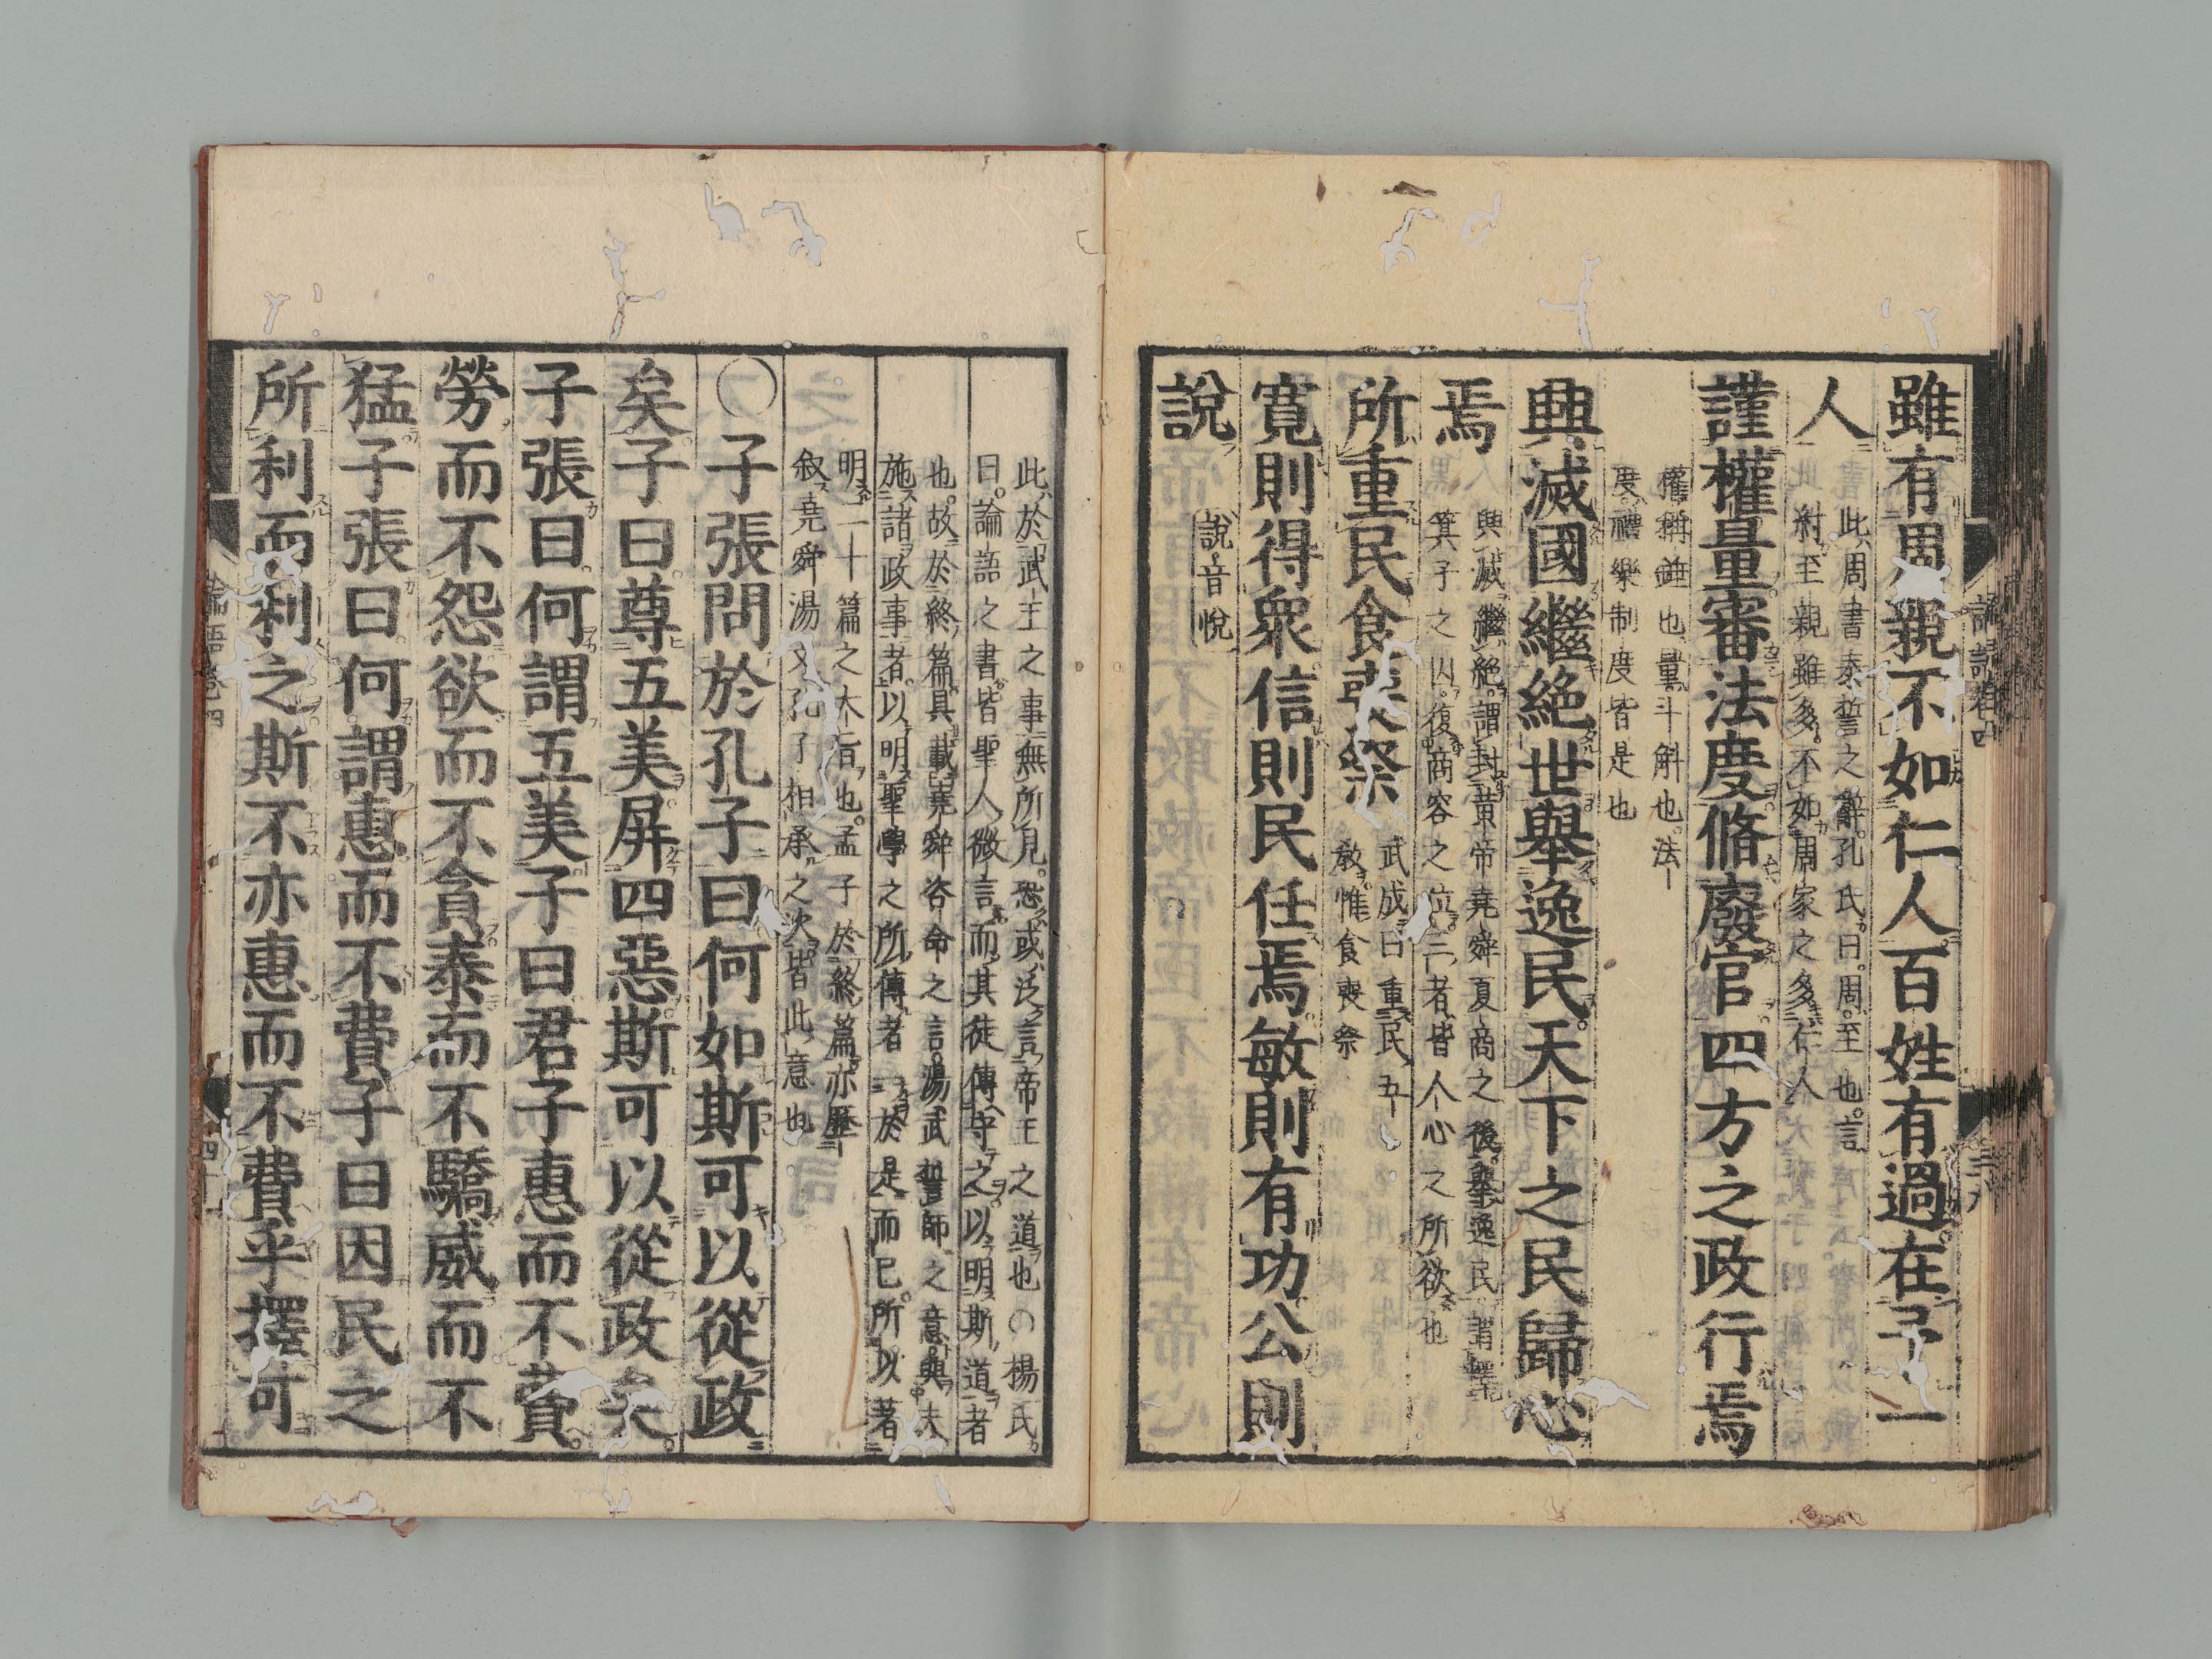 雖有周親不如仁人百姓有過在予一
人
此周書泰誓之辭孔氏曰周至也言
紂至親雖多不如周家之多仁人
謹權量審法度脩廢官四方之政行焉
權稱錘也量斗斛也法
度禮樂制度皆是也
興滅國繼絕世舉逸民天下之民歸心
焉
興滅繼絕謂封黃帝堯舜夏商之後舉逸民謂釋
箕子之囚復商容之位三者皆人心之所欲也
所重民食喪祭
武成曰重民五
教惟食喪祭
寬則得眾信則民任焉敏則有功公則
說
說音悅
此於武王之事無所見恐或泛言帝王之道也○楊氏
曰論語之書皆聖人微言而其徒傳守之以明斯道者
也故於終篇具載堯舜咨命之言湯武誓師之意與夫
施諸政事者以明聖學之所傳者一於是而已所以著
明二十篇之大旨也孟子於終篇亦歷
叙堯舜湯文孔子相承之次皆此意也
○子張問於孔子曰何如斯可以從政
矣子曰尊五美屏四惡斯可以從政矣
子張曰何謂五美子曰君子惠而不費
勞而不怨欲而不貪泰而不驕威而不
猛子張曰何謂惠而不費子曰因民之
所利而利之斯不亦惠而不費乎擇可
論語卷四